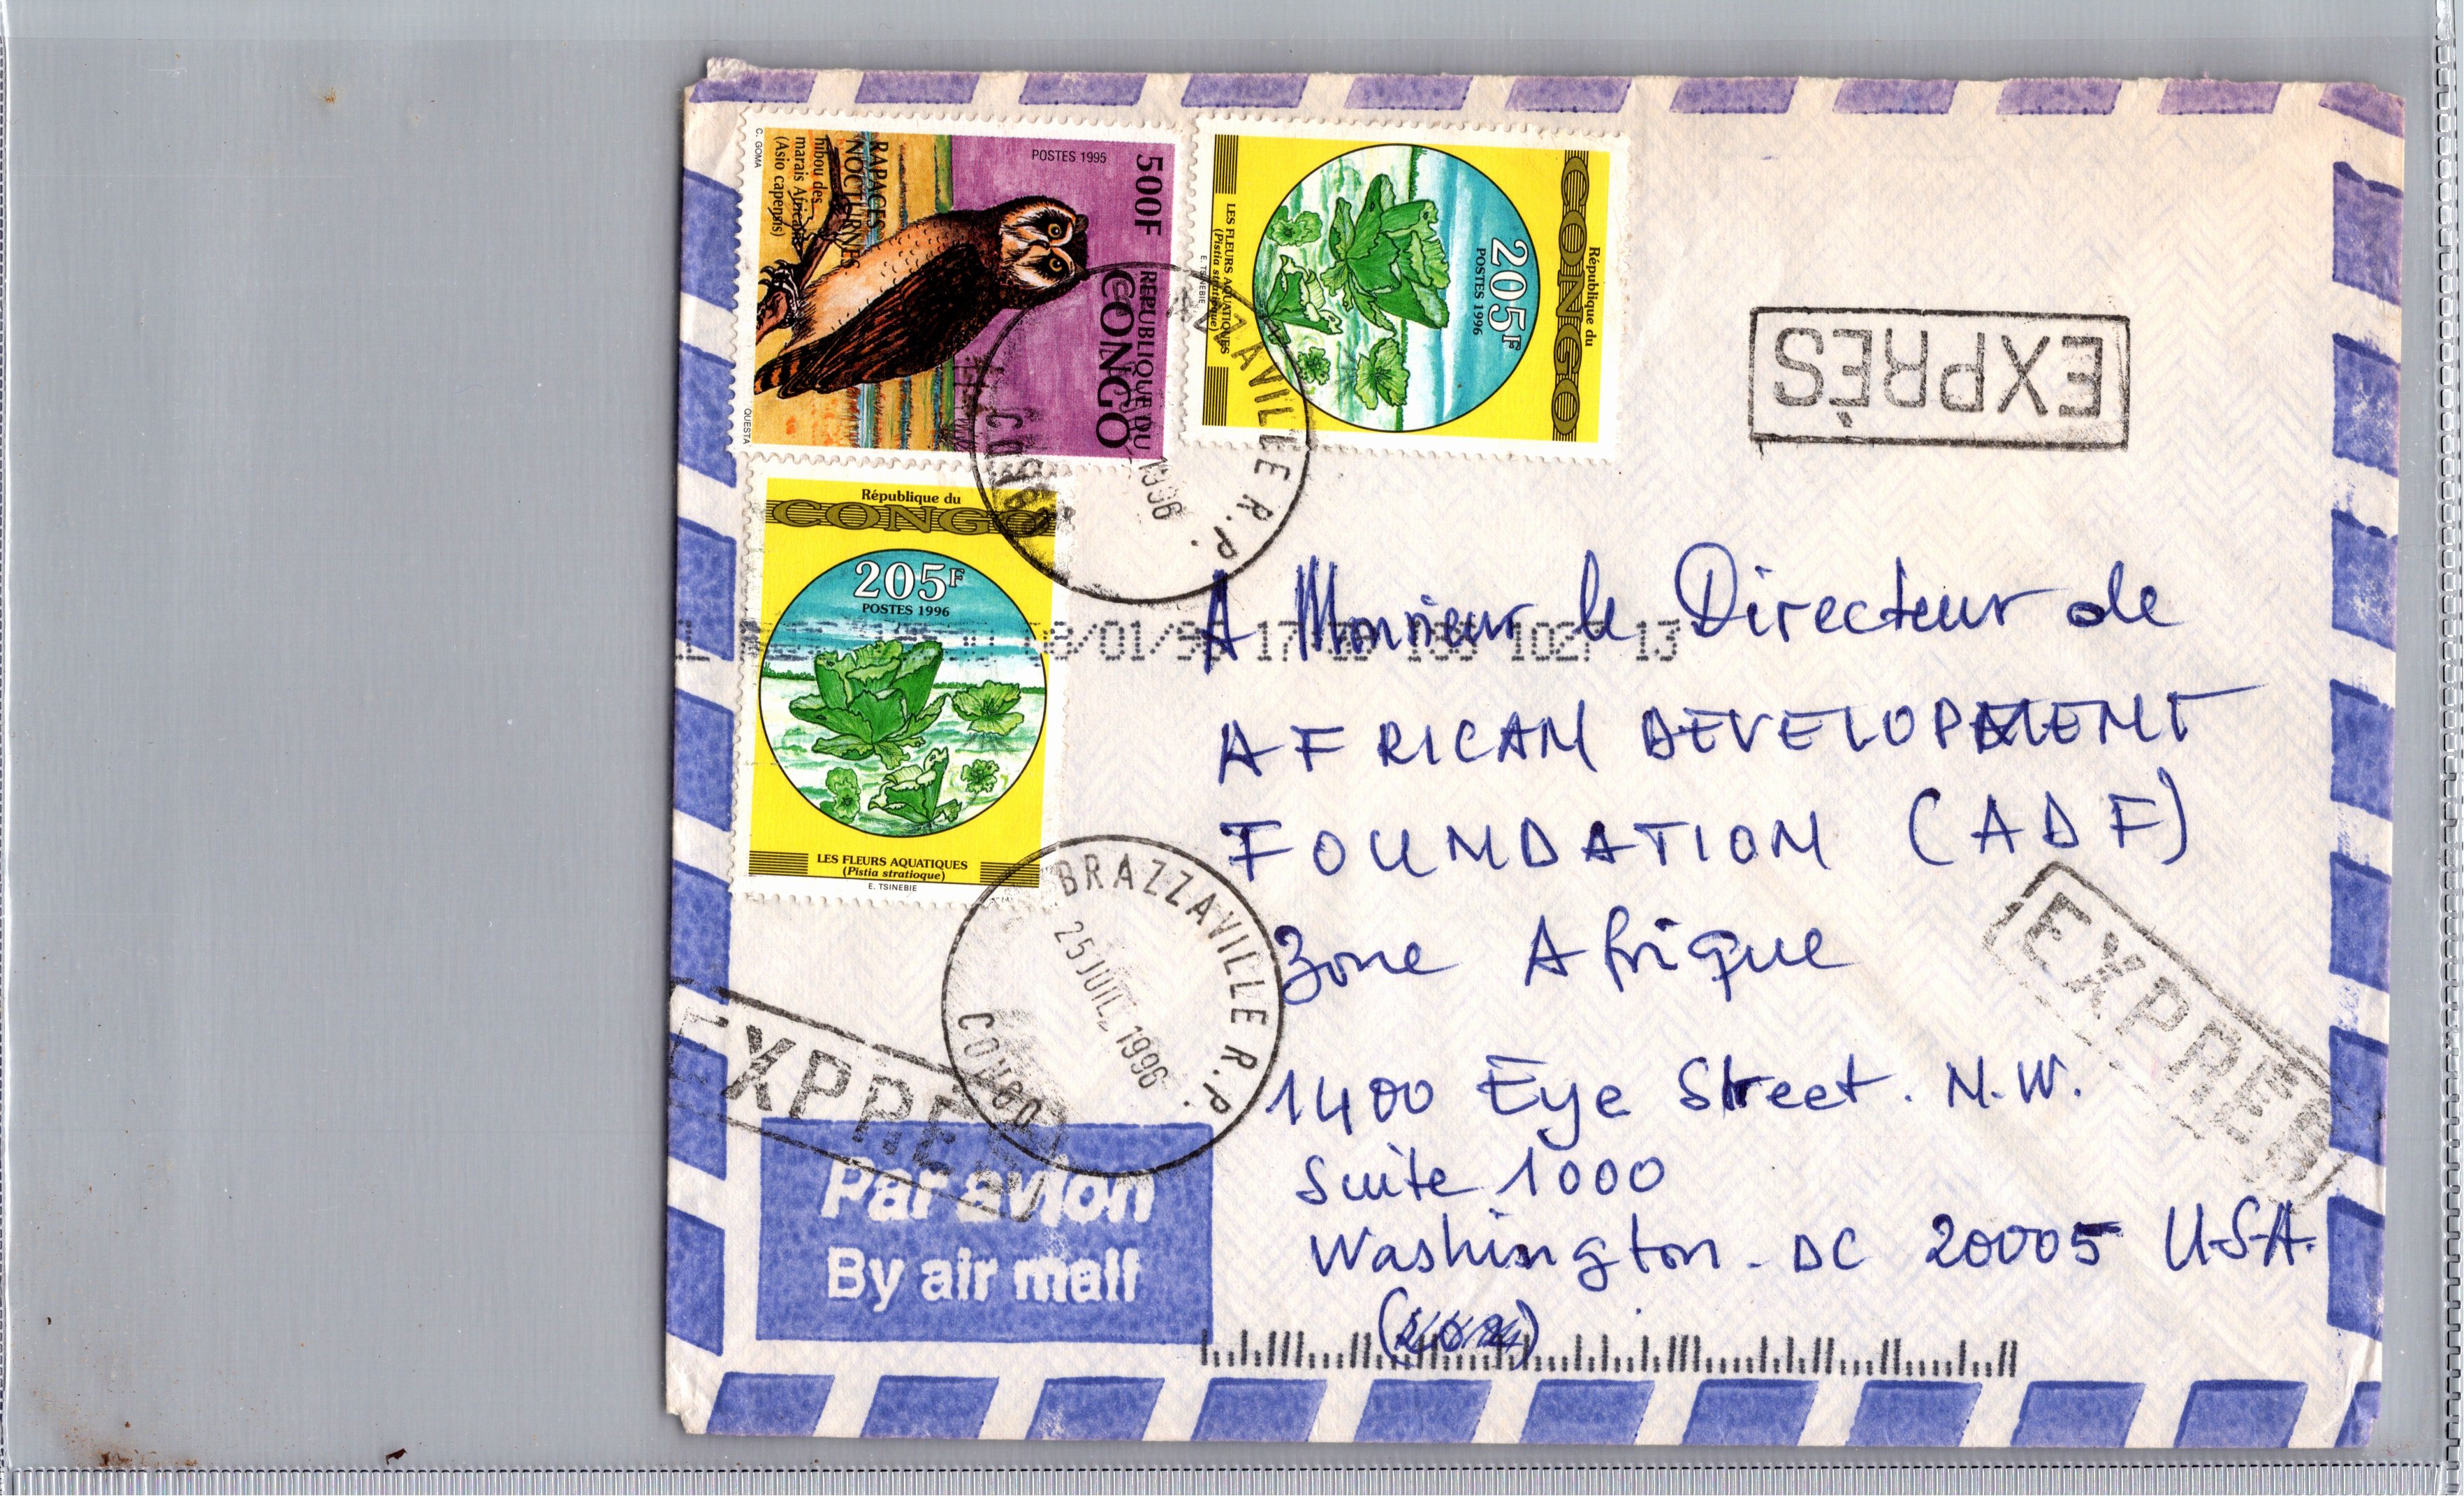 500F
POSTES 1995
REPUBLIQUE DU
CONGO
RAPACES
NOCTURNES
hibou des
marais Africain
(Asio capensis)
C. GOMA
QUESTA
République du
CONGO
205F
POSTES 1996
LES FLEURS AQUATIQUES
(Pistia stratioque)
E. TSINEBIE
EXPRÈS
AZZAVILLE R.P.
1996
CONGO
République du
CONGO
205F
POSTES 1996
LES FLEURS AQUATIQUES
(Pistia stratioque)
E. TSINEBIE
/01/96 17 1027 13
A Monsieur le Directeur de
AFRICAN DEVELOPMENT
FOUNDATION (ADF)
Zone Afrique
1400 Eye Street. N.W.
Suite 1000
Washington - DC 20005 USA.
BRAZZAVILLE R.P.
25 JUIL 1996
CONGO
EXPRES
EXPRES
Par avion
By air mail